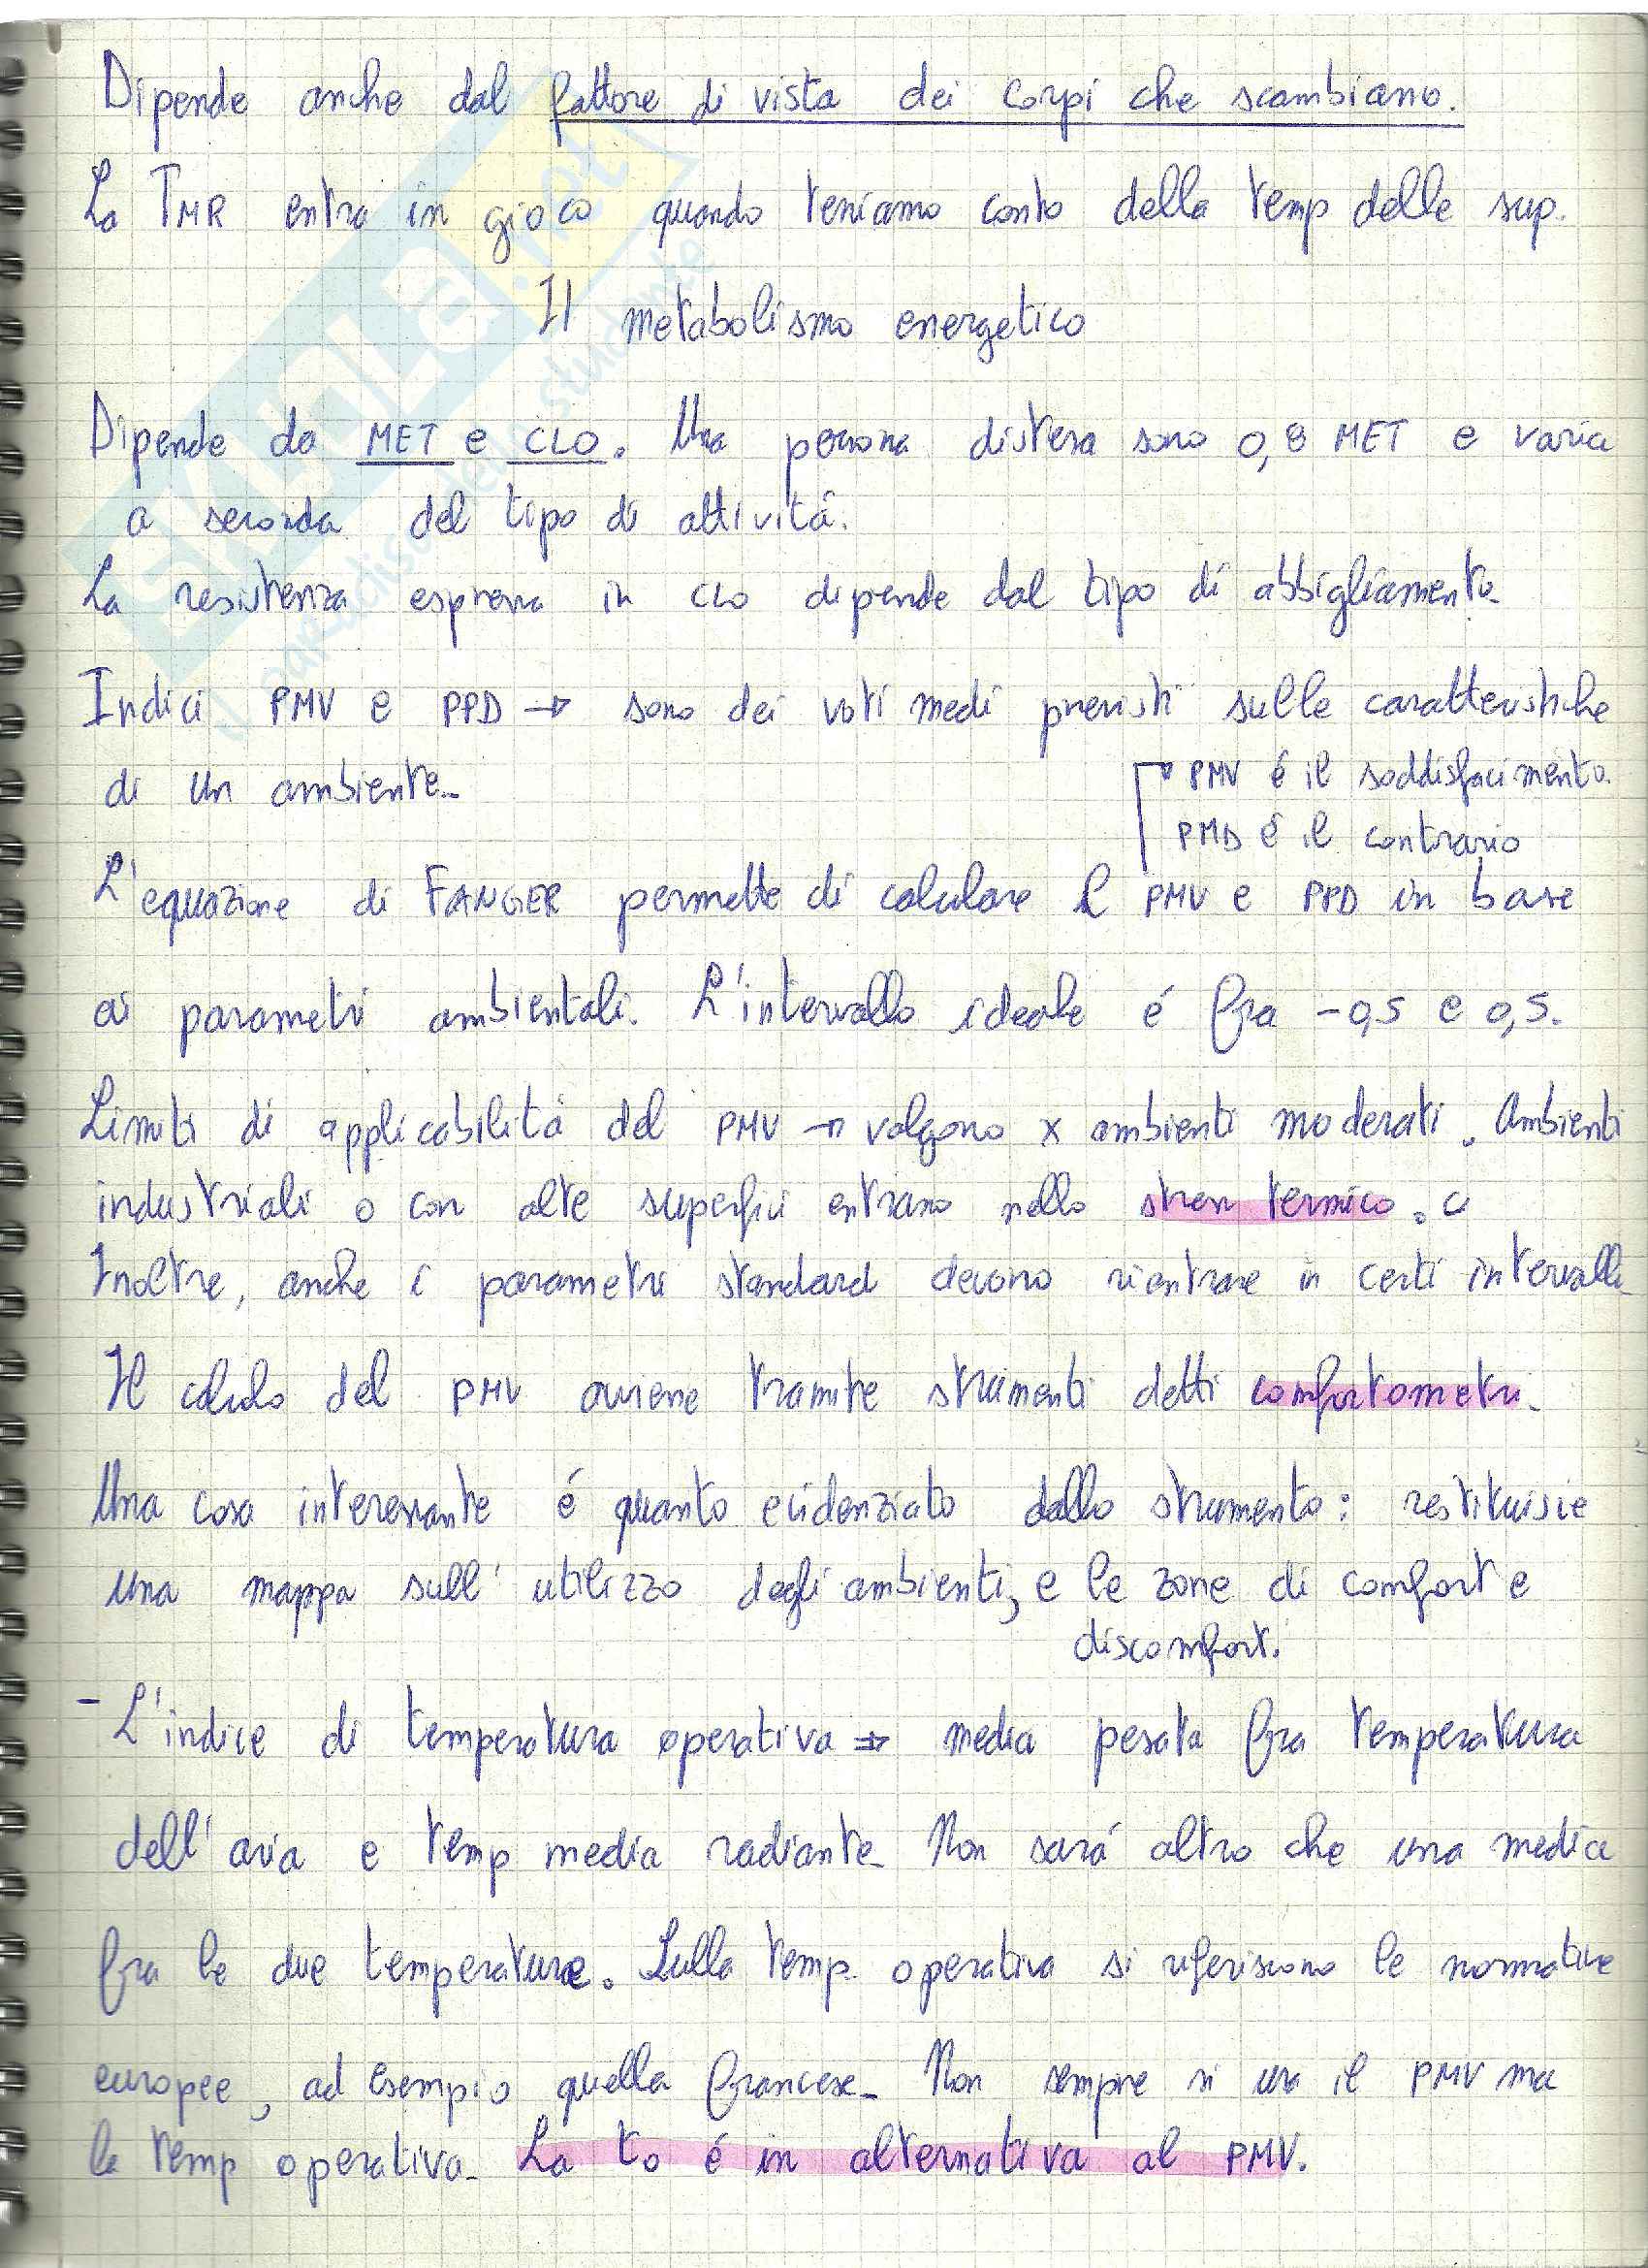 Dipende anche dal fattore di vista dei corpi che scambiano.
La TMR entra in gioco quando teniamo conto della temp delle sup.
Il metabolismo energetico
Dipende da MET e CLO. Una persona distesa sono 0,8 MET e varia
a seconda del tipo di attività.
La resistenza espressa in CLO dipende dal tipo di abbigliamento.
Indici PMV e PPD → sono dei voti medi previsti sulle caratteristiche
di un ambiente.
PMV é il soddisfacimento.
PMD é il contrario
L'equazione di FANGER permette di calcolare il PMV e PPD in base
ai parametri ambientali. L'intervallo ideale é fra -0,5 e 0,5.
Limiti di applicabilità del PMV → valgono x ambienti moderati. Ambienti
industriali o con alte superfici entrano nello stress termico.
Inoltre, anche i parametri standard devono rientrare in certi intervalli
Il calcolo del PMV avviene tramite strumenti detti comfortometri.
Una cosa interessante é quanto evidenziato dallo strumento: restituisce
una mappa sull' utilizzo degli ambienti, e le zone di comfort e
discomfort.
- L'indice di temperatura operativa ⇒ media pesata fra temperatura
dell' aria e temp media radiante. Non sará altro che una media
fra le due temperature. Sulla temp. operativa si riferiscono le normative
europee, ad esempio quella francese. Non sempre si usa il PMV ma
la temp operativa. La to é in alternativa al PMV.
skuola.net
il paradiso dello studente